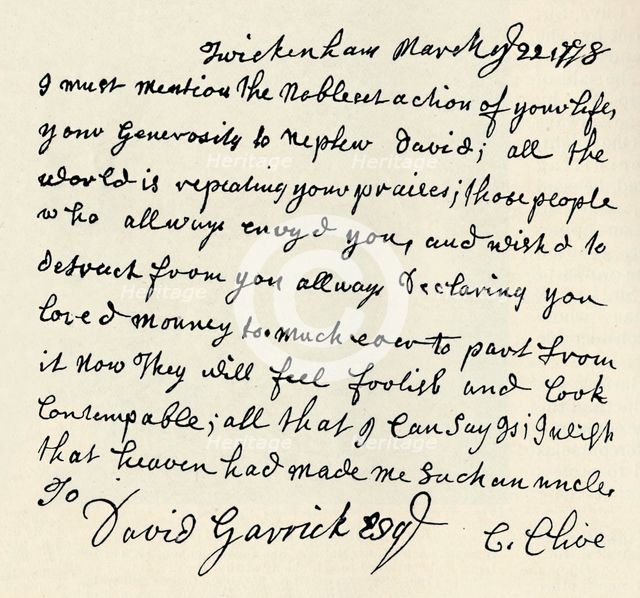 Twickenham March ye 22 1778
I must mention the Nobleest action of your life,
your Generosity to nephew David; all the
world is repeating your praises; those people
who allways envy'd you, and wish'd to
detract from you allways Declaring you
loved mouney to much ever to part from
it Now They will feel foolish and look
Contempable; all that I can say Is; I wish
that heaven had made me Such an uncle.
To
David Garrick Esqr
C. Clive